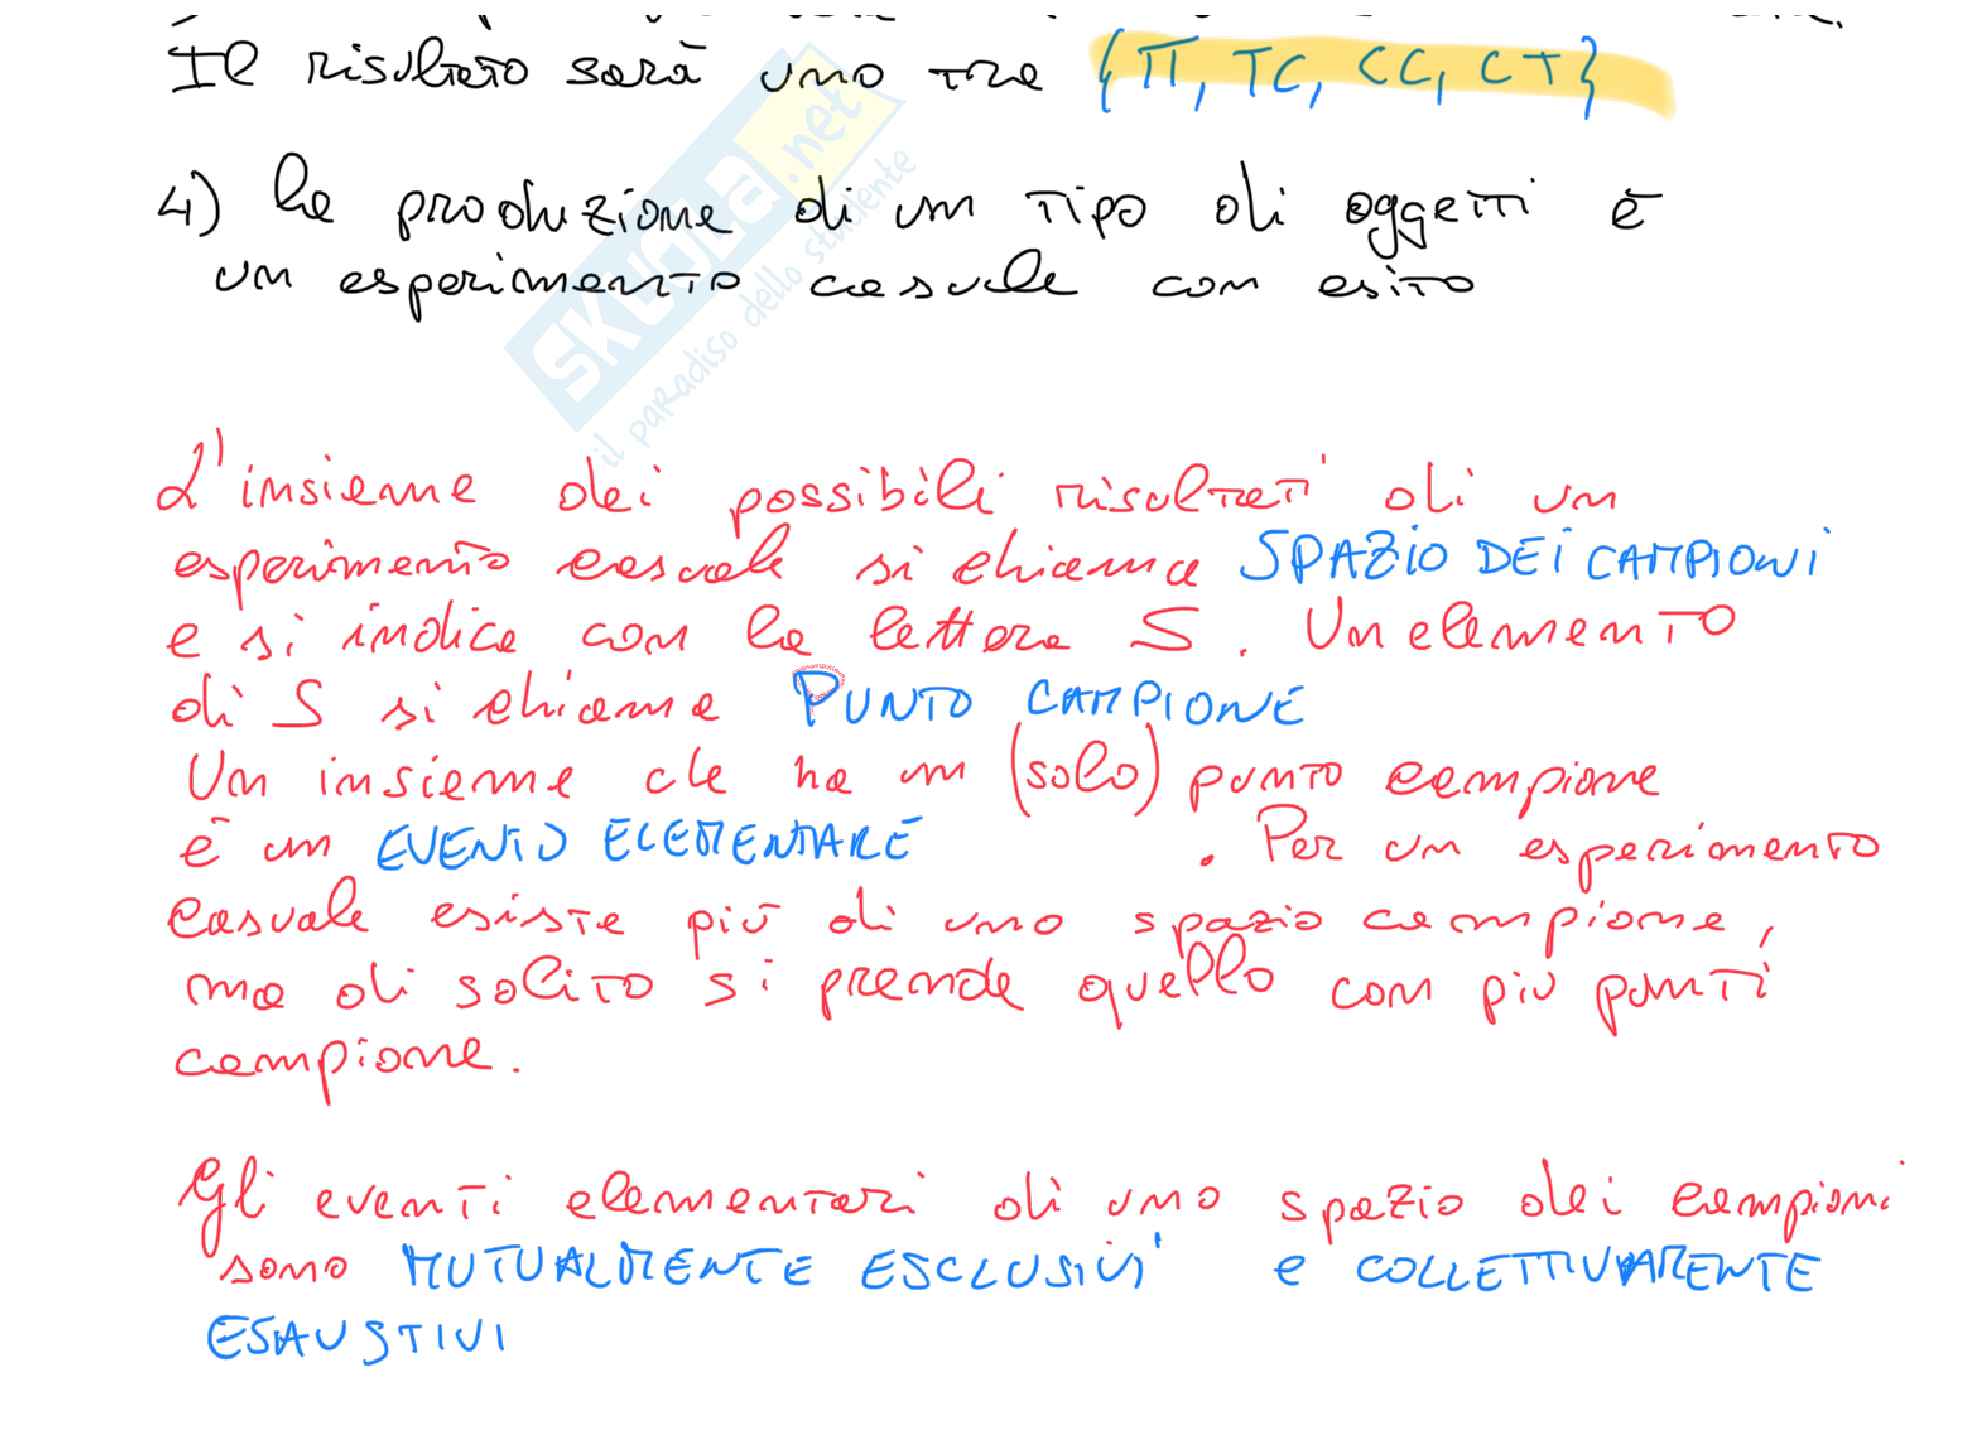 Il risultato sarà uno tra {TT, TC, CC, CT}
4) La produzione di un tipo di oggetti è
un esperimento casuale con esito
SKUOLA.net
il paradiso dello studente
L'insieme dei possibili risultati di un
esperimento casuale si chiama SPAZIO DEI CAMPIONI
e si indica con la lettera S. Un elemento
di S si chiama PUNTO CAMPIONE
Un insieme che ha un (solo) punto campione
è un EVENTO ELEMENTARE. Per un esperimento
casuale esiste più di uno spazio campione,
ma di solito si prende quello con più punti
campione.
Gli eventi elementari di uno spazio dei campioni
sono MUTUALMENTE ESCLUSIVI e COLLETTIVAMENTE
ESAUSTIVI